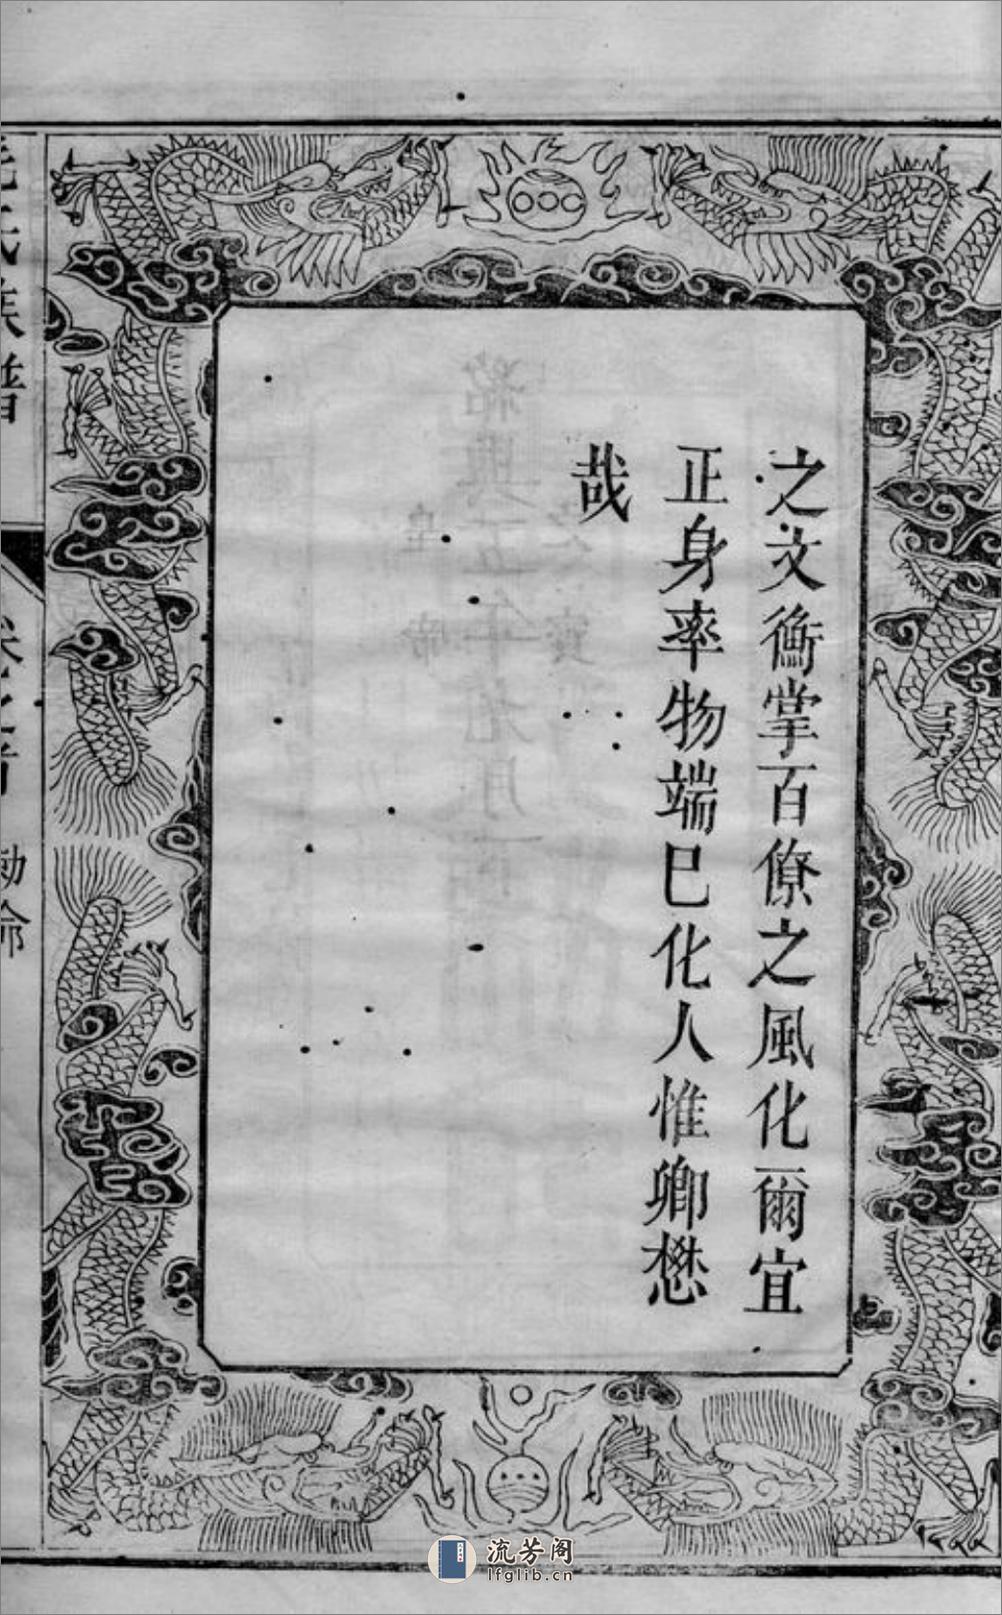 之文衡掌百僚之風化爾宜
正身率物端巳化人惟卿懋
哉
族譜
勅命
流芳阁
lfglib.cn